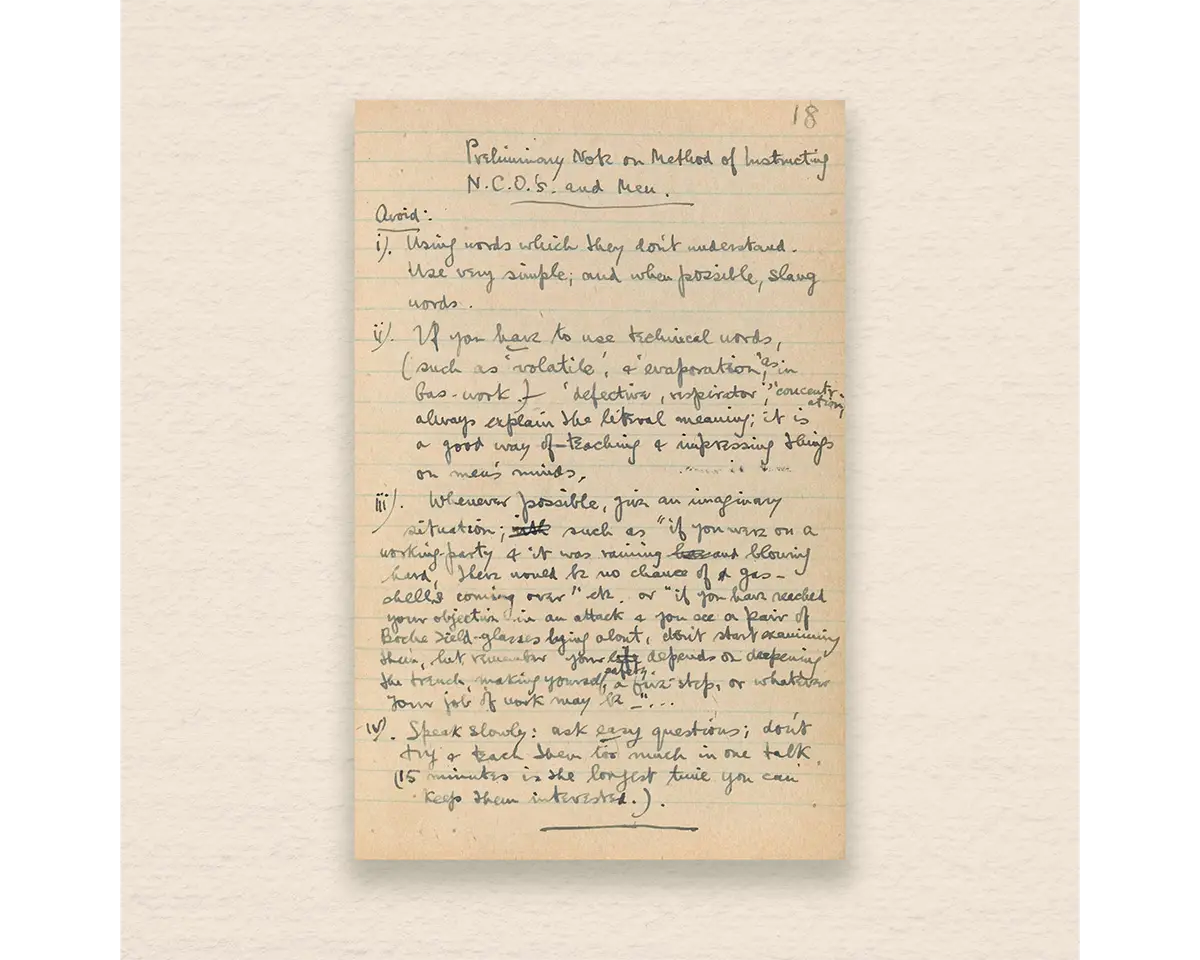 18
Preliminary Note on Method of Instructing
N.C.O.'s. and Men.
Avoid:
i). Using words which they don't understand.
Use very simple; and when possible, slang
words.
ii). If you have to use technical words,
(such as 'volatile', & 'evaporation', as in
Gas-work.) 'defective, respirator', "concentr-
ation,
always explain the literal meaning; it is
a good way of teaching & impressing things
on men's minds,
iii). Whenever possible, give an imaginary
situation; such as "if you were on a
working-party & it was raining and blowing
hard, there would be no chance of a gas-
shells coming over" etc. or "if you have reached
your objective in an attack & you see a pair of
Boche field-glasses lying about, don't start examining
them, but remember your safety depends on deepening
the trench, making yourself a fire-step, or whatever
your job of work may be –"...
iv). Speak slowly: ask easy questions; don't
try & teach them too much in one talk.
(15 minutes is the longest time you can
keep them interested.).